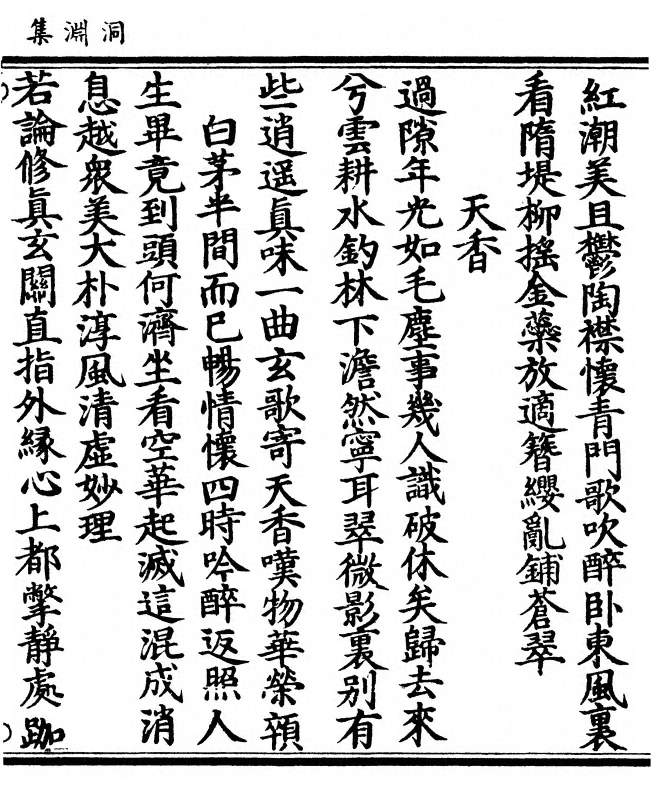 洞淵集
紅潮美且鬱陶襟懷青門歌吹醉卧東風裏
看隋堤柳搖金蘂放適簪纓亂鋪蒼翠
天香
過隙年光如毛塵事幾人識破休矣歸去來
兮雲耕水釣林下澹然寧耳翠微影裏别有
些逍遥眞味一曲玄歌寄天香嘆物華榮顇
白茅半間而已暢情懷四時吟醉返照人
生畢竟到頭何濟坐看空華起滅這混成消
息越衆美大朴淳風清虛妙理
若論修眞玄關直指外緣心上都撆靜處跏